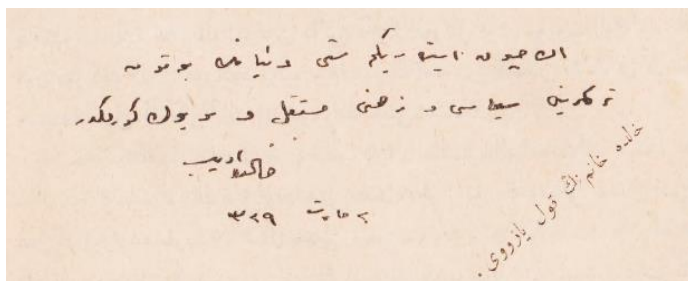 اك چوق ایسته دیكم شئی دنیانك بوتون
تركلرینی سیاسی و ذهنی مستقل و بویوك كورمكدر
خالده ادیب
٢ مارت ٣٢٩
خالده خانم ڭ قول یازووی.